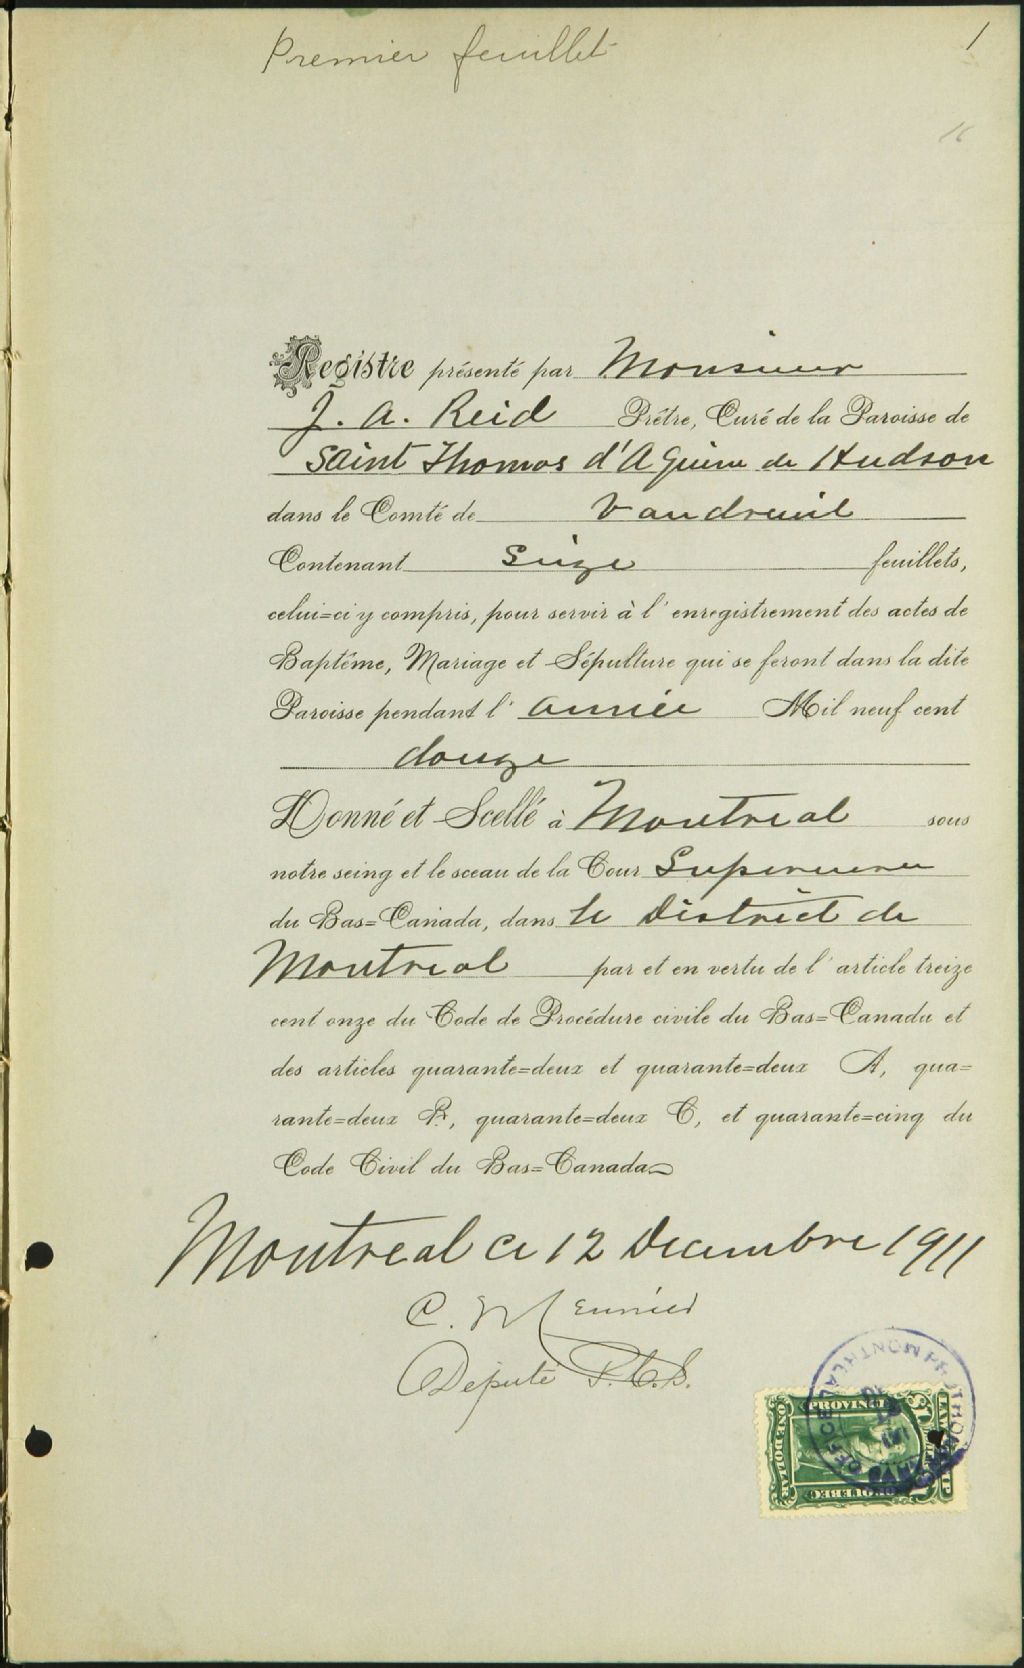 Premier feuillet
1
16
Registre présenté par Monsieur
J. A. Reid Prêtre, Curé de la Paroisse de
Saint Thomas d'Aquin de Hudson
dans le Comté de Vaudreuil
Contenant Seize feuillets,
celui=ci y compris, pour servir à l'enregistrement des actes de
Baptême, Mariage et Sépulture qui se feront dans la dite
Paroisse pendant l'année Mil neuf cent
douze
Donné et Scellé à Montreal sous
notre seing et le sceau de la Cour Superieure
du Bas=Canada, dans le District de
Montreal par et en vertu de l'article treize
cent onze du Code de Procédure civile du Bas=Canada et
des articles quarante=deux et quarante=deux A, qua=
rante=deux B, quarante=deux C, et quarante=cinq du
Code Civil du Bas=Canada
Montreal ce 12 Decembre 1911
C. Meunier
Député P.C.S.
MONTREAL
OFFICE
PROVINCE
QUEBEC
ONE DOLLAR
$1